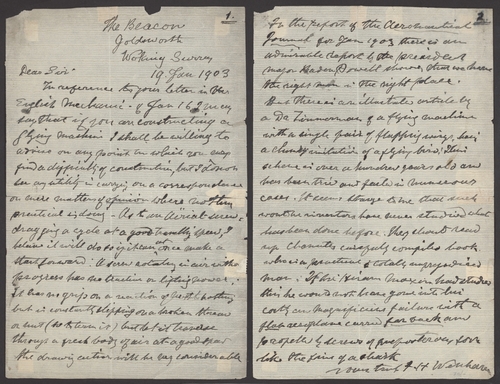 1.
The Beacon
Goldsworth
Woking Surrey
19 Jan 1903
Dear Sir
In reference to your letter in the
English Mechanic of Jan 16 I may
say that if you are constructing a
flying machine I shall be willing to
advise on any point in which you may
find a difficulty of construction but I do not
see any utility in carrying on a correspondence
on mere matters of opinion where nothing
practical is doing. As to an Aerial screw
dragging a cycle at a good speed, I
believe it will do so if it can once make a
start forward. A screw rotating in air with no
progress has no traction or lifting power.
it has no grip on a reaction of
but is constantly slipping on a broken stream
or nut (as it were) but let it traverse
through a fresh body of air at a good speed
the drawing action will be very considerable
2.
In the Report of the Aeronautical
Journal for Jan 1903 there is an
admirable report by the president
Major Baden Powell showing that we have
the right man in the right place.
But there is an illustrated article by
a Dr of a flying machine
with a single pair of flapping wings, being
a clumsy imitation of a flying bird. This
scheme is over a hundred years old and
has been tried and failed in numerous
cases. It seems strange to me that such
inventors have never studied what
has been done before. They should read
up Chanutes carefully compiled book
who is a practical & totally unprejudiced
man. If Sir Hiram Maxim had studied
this he would not have gone into his
costly and magnificent failure with a
flat aeroplane carried far back and
propelled by screws of
like the fins of a shark
yours truly F H Wenham